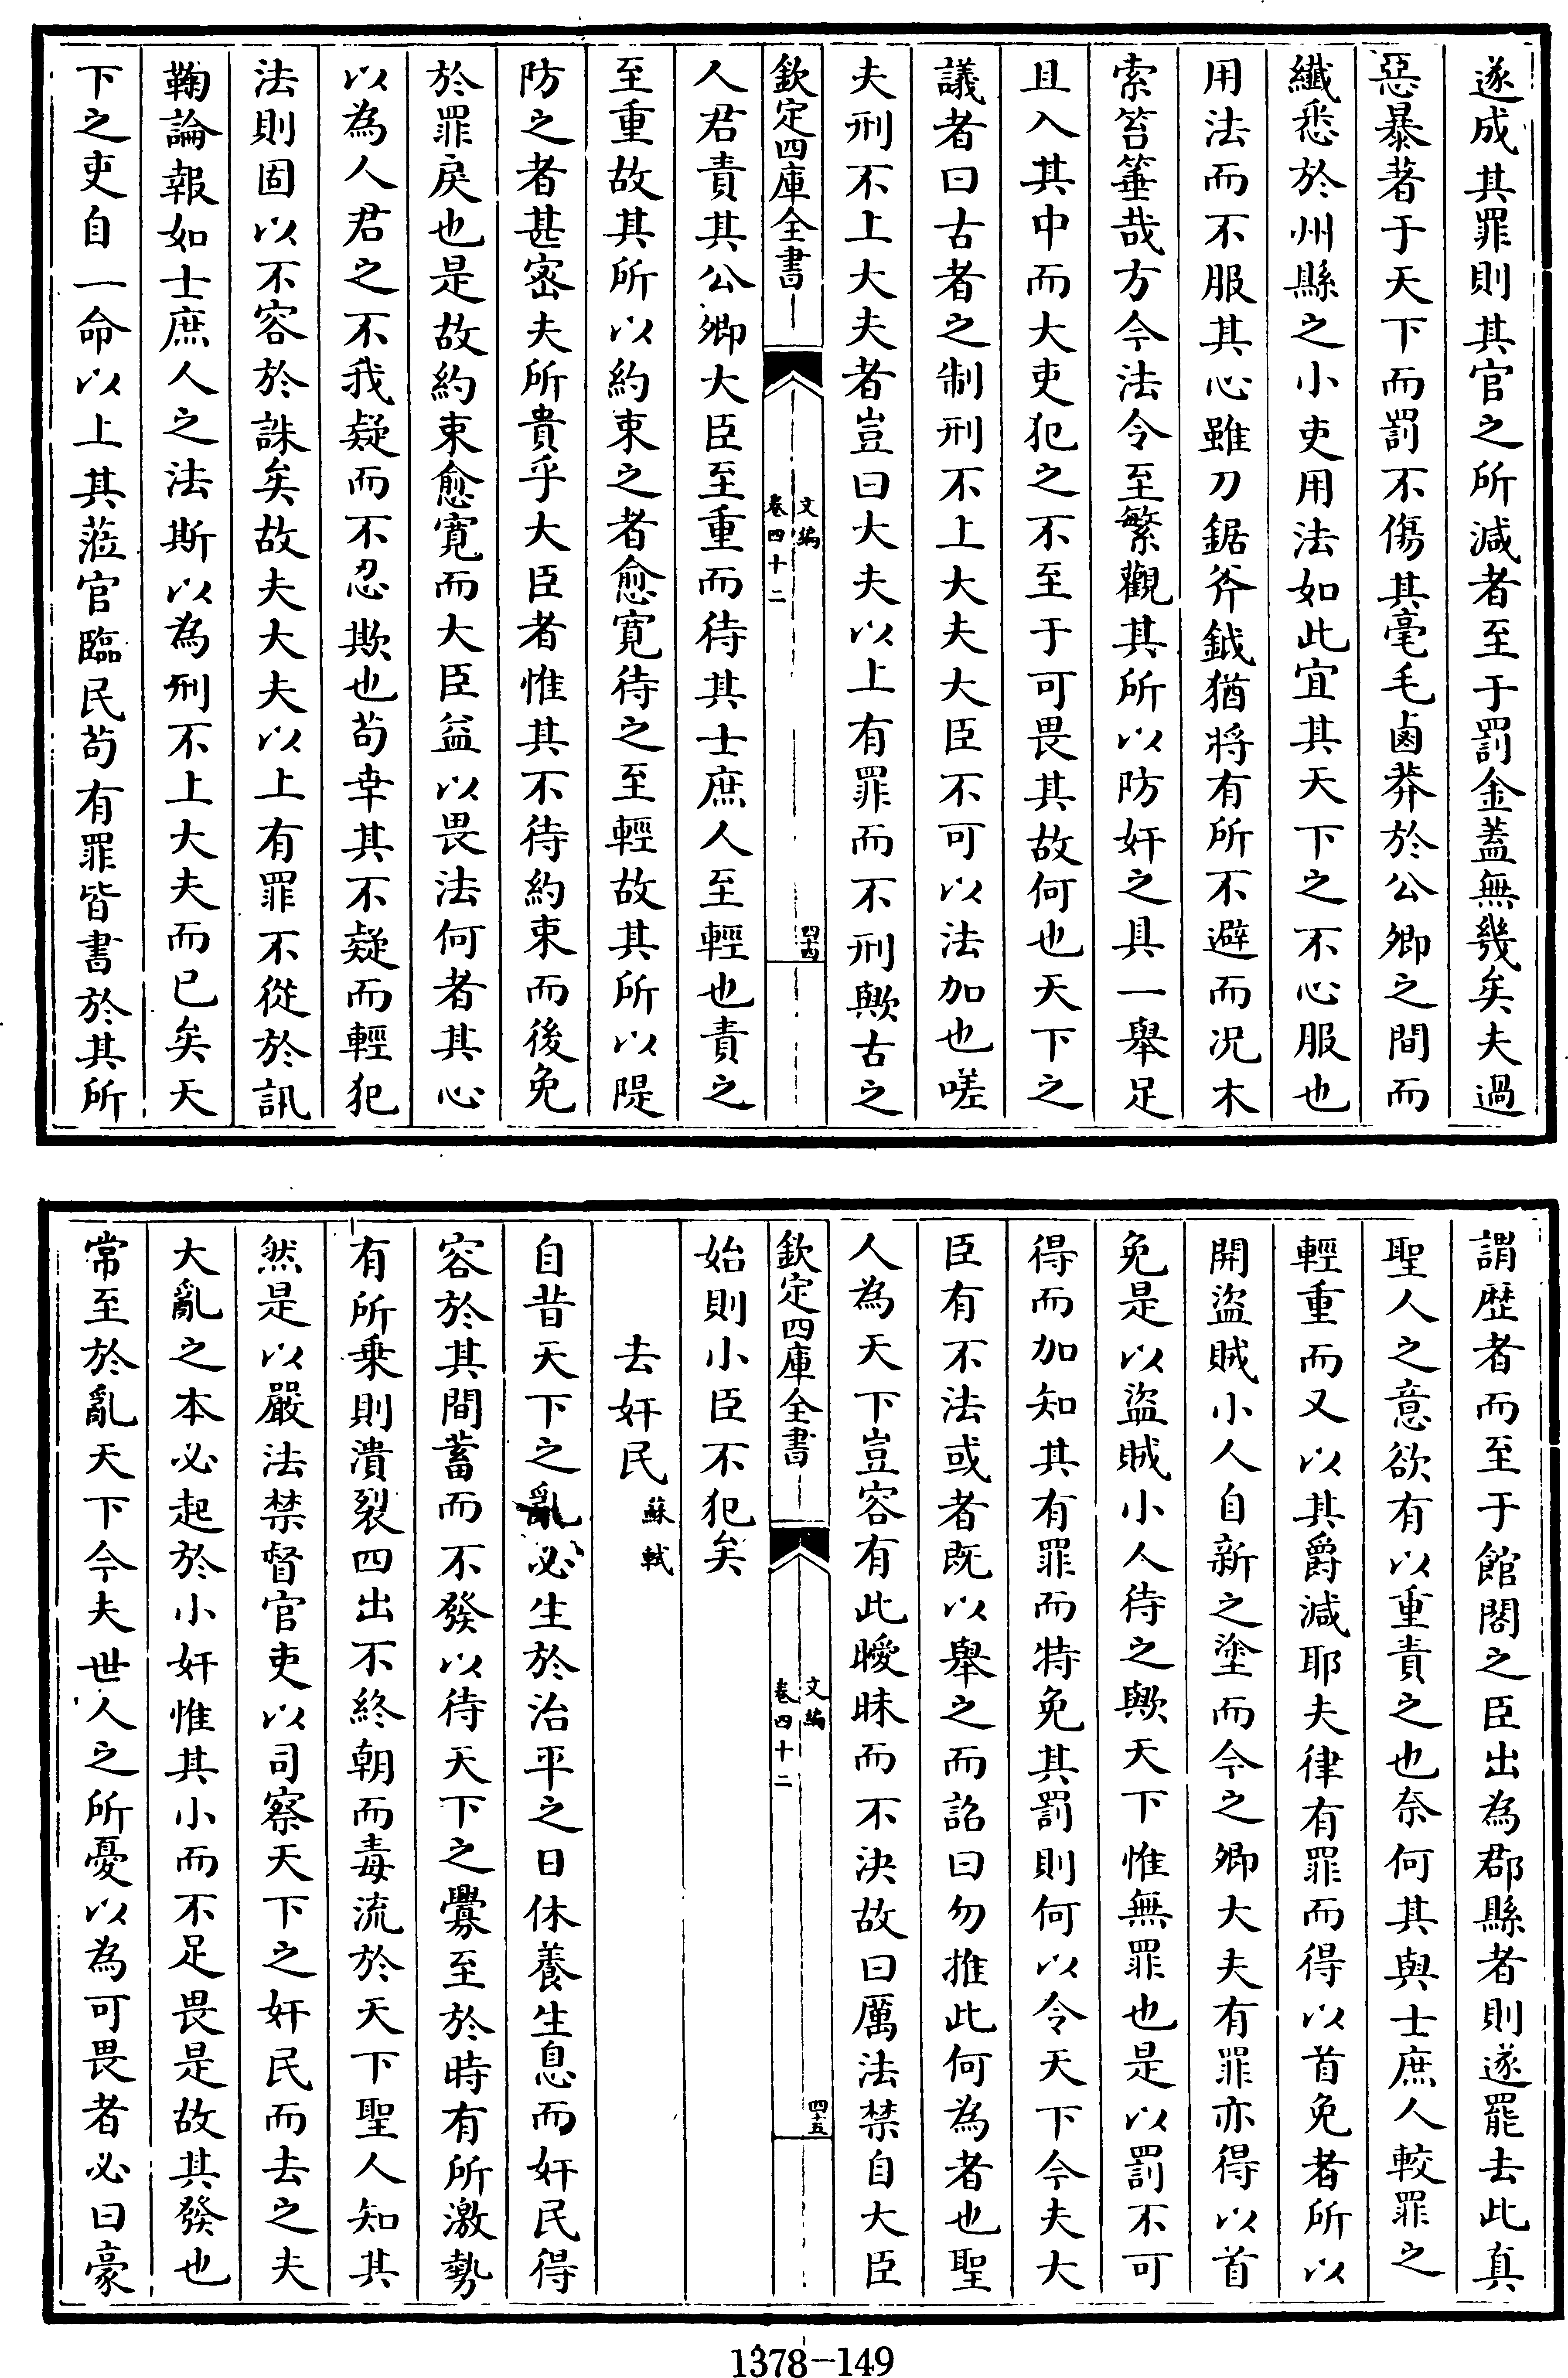 遂成其罪則其官之所減者至于罰金蓋無幾矣夫過
惡暴著于天下而罰不傷其毫毛鹵莽於公卿之間而
纖悉於州縣之小吏用法如此宜其天下之不心服也
用法而不服其心雖刀鋸斧鉞猶將有所不避而况木
索笞箠哉方今法令至繁觀其所以防奸之具一舉足
且入其中而大吏犯之不至于可畏其故何也天下之
議者曰古者之制刑不上大夫大臣不可以法加也嗟
夫刑不上大夫者豈曰大夫以上有罪而不刑歟古之
欽定四庫全書
文編
卷四十二
四十四
人君責其公卿大臣至重而待其士庶人至輕也責之
至重故其所以約束之者愈寛待之至輕故其所以隄
防之者甚宻夫所貴乎大臣者惟其不待約束而後免
於罪戾也是故約束愈寛而大臣益以畏法何者其心
以為人君之不我疑而不忍欺也苟幸其不疑而輕犯
法則固以不容於誅矣故夫大夫以上有罪不從於訊
鞫論報如士庶人之法斯以為刑不上大夫而已矣天
下之吏自一命以上其蒞官臨民苟有罪皆書於其所
謂歴者而至于館閣之臣出為郡縣者則遂罷去此真
聖人之意欲有以重責之也奈何其與士庶人較罪之
輕重而又以其爵減耶夫律有罪而得以首免者所以
開盜賊小人自新之塗而今之卿大夫有罪亦得以首
免是以盜賊小人待之歟天下惟無罪也是以罰不可
得而加知其有罪而特免其罰則何以令天下今夫大
臣有不法或者既以舉之而詔曰勿推此何為者也聖
人為天下豈容有此曖昧而不決故曰厲法禁自大臣
欽定四庫全書
文編
卷四十二
四十五
始則小臣不犯矣
去奸民蘇軾
自昔天下之亂必生於治平之日休養生息而奸民得
容於其間蓄而不發以待天下之釁至於時有所激勢
有所乗則潰裂四出不終朝而毒流於天下聖人知其
然是以嚴法禁督官吏以司察天下之奸民而去之夫
大亂之本必起於小奸惟其小而不足畏是故其發也
常至於亂天下今夫世人之所憂以為可畏者必曰豪
1378-149